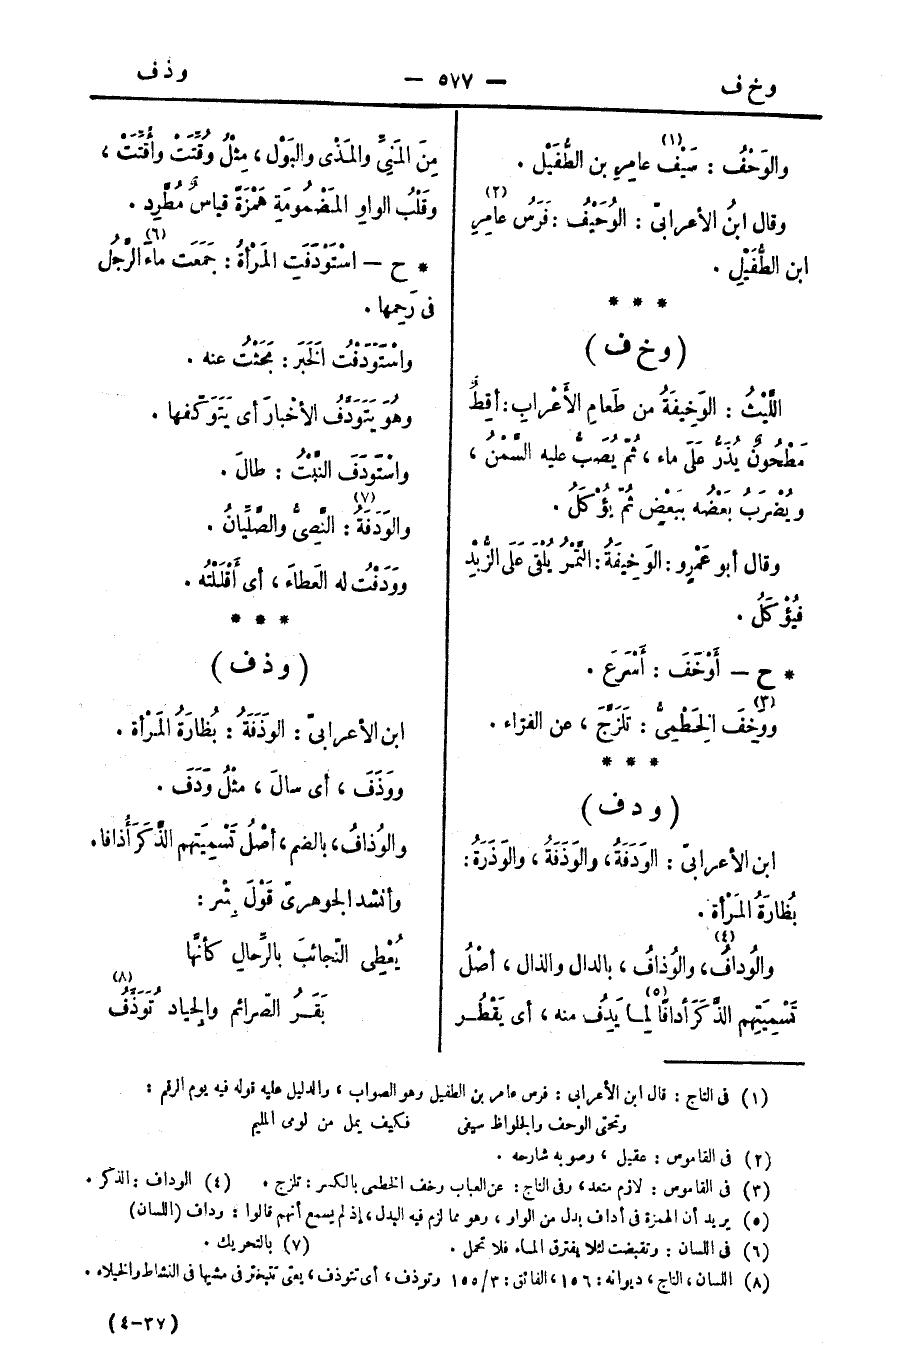 وخ ف — ٥٧٧ — وذف
والوَحْفُ : سَيْف(١) عامِرِ بن الطُّفَيْل .
وقال ابنُ الأعرابىّ : الوُحَيْف : فَرَس عامِرِ(٢)
ابن الطُّفَيْلِ .
* * *
( وخ ف )
اللَّيْثُ : الوَخِيفَةُ من طَعامِ الأَعْرابِ : أَقِطٌ
مَطْحُونٌ يُذَرُّ عَلَى ماء ، ثُمّ يُصَبُّ عليه السَّمْنُ ،
ويُضْرَبُ بَعْضُه بِبَعْضٍ ثُمّ يُؤْكَلُ .
وقال أبو عَمْرٍو : الوَخِيفَةُ : التَّمْرُ يُلْقَى عَلَى الزُّبْدِ
فيُؤْكَلُ .
* ح — أَوْخَفَ : أَسْرَعَ .
ووَخِفَ(٣) الخِطْمِىُّ : تَلَزَّجَ ، عن الفرّاء .
* * *
( ودف )
ابن الأعرابىّ : الوَدَفَةُ ، والوَذَفَةُ ، والوَذَرَةُ :
بُظَارَةُ المَرْأة .
والوُدافُ(٤) ، والوُذافُ ، بالدال والذال ، أصْلُ
تَسْمِيَتِهم الذَّكَرَ أُدافًا(٥) لِمـا يَدِفُ منه ، أى يَقْطُر
مِنَ المَنِىِّ والمَذْى والبَوْل ، مِثْلُ وُقِّتَتْ وأُقِّتَتْ ،
وقَلْبُ الواوِ المَضْمُومَةِ هَمْزَةً قياسٌ مُطَّرِد .
* ح — اسْتَوْدَفَتِ المَرْأَةُ : جَمَعَت ماءَ(٦) الرَّجُل
فى رَحِمِها .
واسْتَوْدَفْتُ الخَبَرَ : بَحَثْتُ عنه .
وهُوَ يَتَوَدَّفُ الأَخْبارَ أى يَتَوَكَّفُها .
واسْتَوْدَفَ النَّبْتُ : طالَ .
والوَدَفَةُ(٧) : النَّصِىُّ والصِّلِّيَانُ .
ووَدَفْتُ له العَطاءَ ، أى أَقْلَلْتُه .
* * *
( وذف )
ابن الأعرابىّ : الوَذَفَةُ : بُظَارَةُ المَرْأة .
ووَذَفَ ، أى سالَ ، مثْلُ وَدَفَ .
والوُذافُ ، بالضم ، أصْلُ تَسْمِيَتِهم الذَّكَرَ أُذافا .
وأنشد الجوهرىّ قَوْلَ بِشْر :
يُعْطِى النَّجائبَ بالرِّحالِ كأنَّها
بَقَرُ الصَّرائمِ والجِيادَ تُوَذِّفُ(٨)
(١) فى التاج : قال ابن الأعرابى : فرس عامر بن الطفيل وهو الصواب ، والدليل عليه قوله فيه يوم الرقم :
وتحتى الوحف والجلواظ سيفى فكيف يمل من لومى المليم
(٢) فى القاموس : عقيل ، وصوبه شارحه .
(٣) فى القاموس : لازم متعد ، وفى التاج : عن العباب وخف الخطمى بالكسر : تلزج . (٤) الوداف : الذكر .
(٥) يريد أن الهمزة فى أداف بدل من الواو ، وهو مما لزم فيه البدل ، إذ لم يسمع أنهم قالوا : وداف (اللسان)
(٦) فى اللسان : وتقبضت لئلا يفترق المـاء فلا تحمل . (٧) بالتحريك .
(٨) اللسان ، التاج ، ديوانه : ١٥٦ ، الفائق : ٣/ ١٥٥ وتوذف ، أى تتوذف ، يعنى تتبختر فى مشيها فى النشاط والخيلاء .
(٣٧-٤)